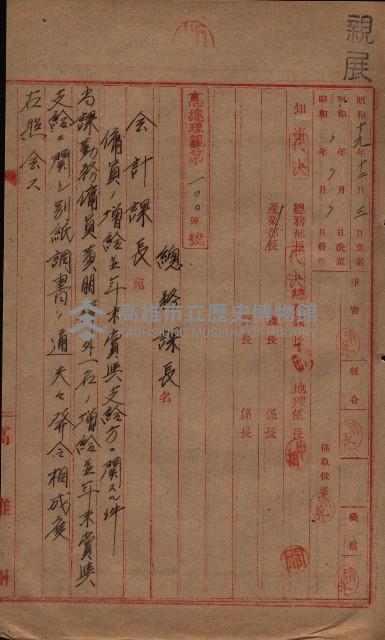 親展
昭和十九年十二月三日立案
昭和 年 月 日決裁
昭和 年 月 日發
淨書
校合
發送
係取扱者
知事代決 總務部長代決 總務課長 地理係長
產業部長 課長 係長
課長 係長
高總理第一〇〇號
總務課長名
会計課長宛
傭員ノ增給並年末賞與支給方ニ関スル件
當課勤務傭員黃朋 外一名ノ增給並年末賞與
支給ニ関シ別紙調書ノ通夫々發令相成度
右照会ス
高雄市立歷史博物館
KAOHSIUNG MUSEUM OF HISTORY
高雄州